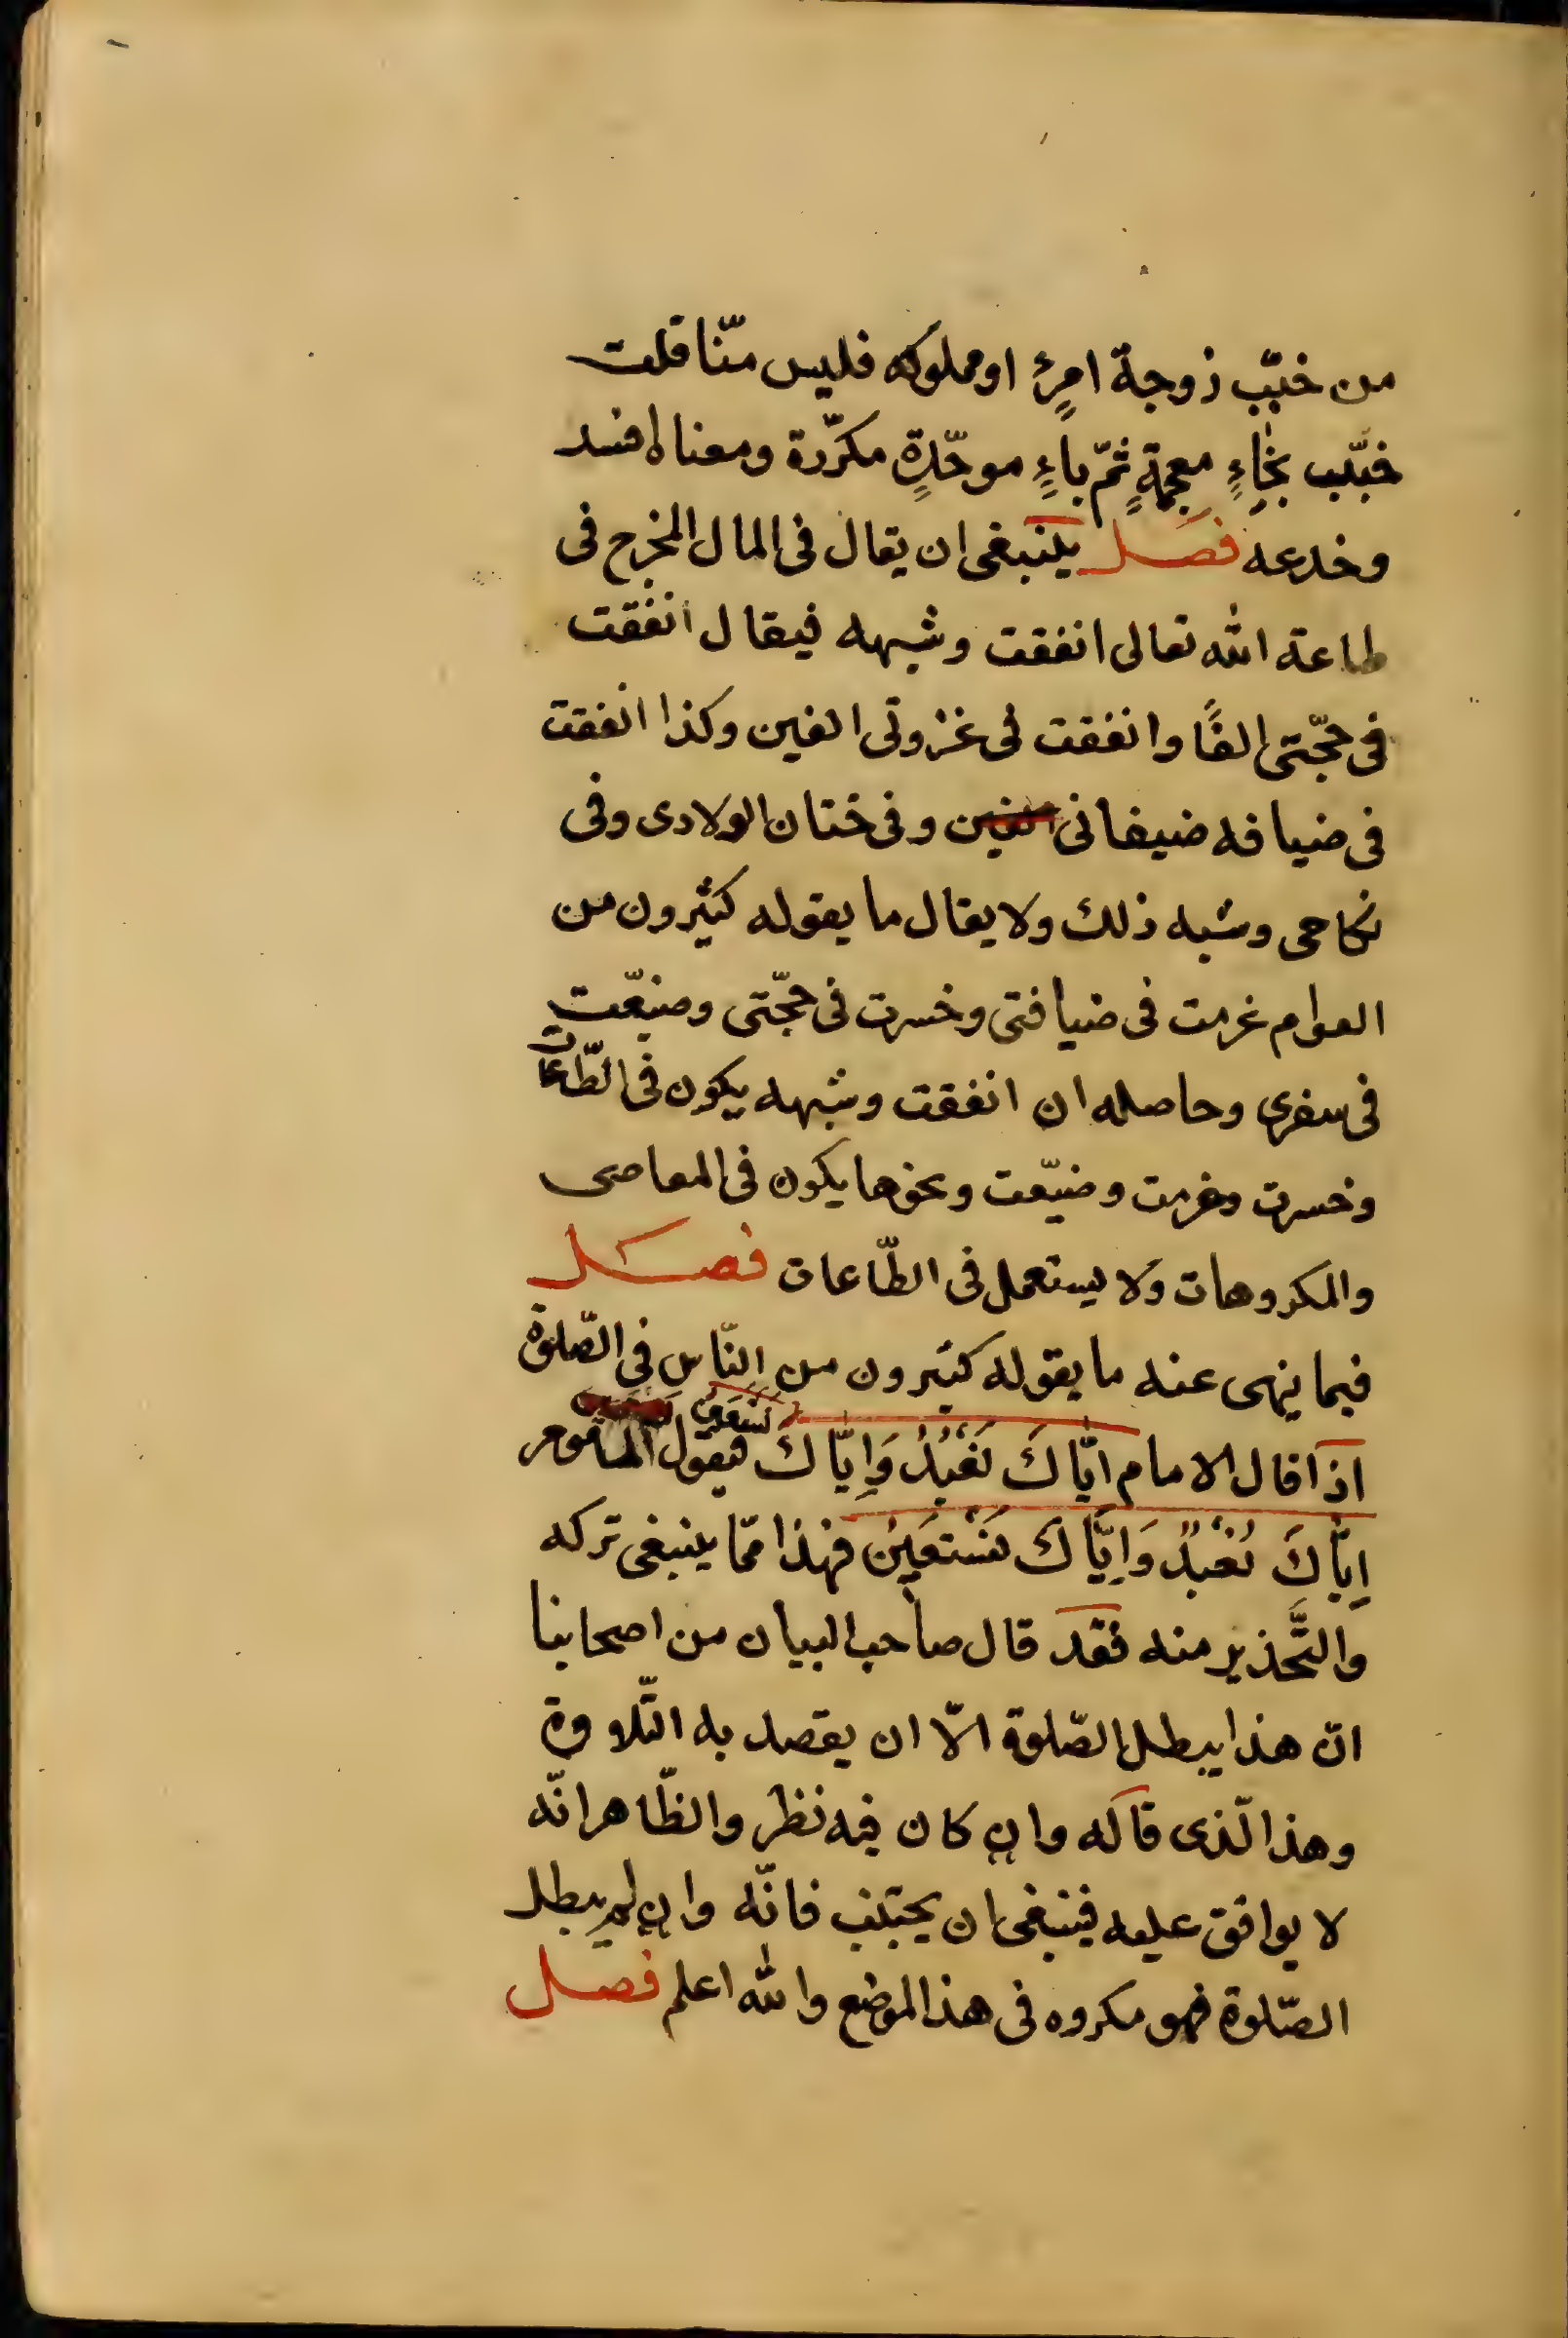 من خبّب زوجة امرٍئ او مملوكه فليس منّا قلت
خبّب بخاءٍ معجمةٍ ثمّ باءٍ موحّدةٍ مكرّرة ومعناه افسد
وخدعه فصل ينبغى ان يقال فى المال المخرج فى
طاعة الله تعالى انفقت وشبهه فيقال انفقت
فى حجّتى الفًا وانفقت فى غزوتى الفين وكذا انفقت
فى ضيافه ضيفانى الفين وفى ختان اولادى وفى
نكاحى وشبه ذلك ولا يقال ما يقوله كثيرون من
العوام غرمت فى ضيافتى وخسرت فى حجّتى وضيّعت
فى سفرى وحاصله ان انفقت وشبهه يكون فى الطّاعات
وخسرت وغرمت وضيّعت ونحوها يكون فى المعاصى
والمكروهات ولا يستعمل فى الطّاعات فصل
فيما ينهى عنه ما يقوله كثيرون من النّاس فى الصّلوة
اذا قال الامام ايّاكَ نَعْبُدُ وَاِيّاكَ نَسْتَعِينُ فيقول المأموم
اِيّاكَ نَعْبُدُ وَاِيَّاكَ نَسْتَعِينُ فهذا ممّا ينبغى تركه
والتَّحذير منه فقد قال صاحب البيان من اصحابنا
انّ هذا يبطل الصّلوة الّا ان يقصد به التّلاوة
وهذا لّذى قاله وان كان فيه نظر والظّاهر انّه
لا يوافق عليه فينبغى ان يجتنب فانّه وان لم يبطل
الصّلوة فهو مكروه فى هذا الموضع والله اعلم فصل